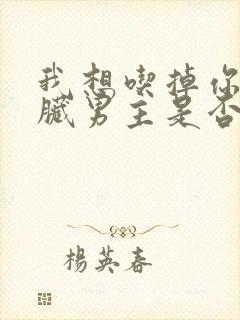 我想喫掉你
臟男主是否
楊英春